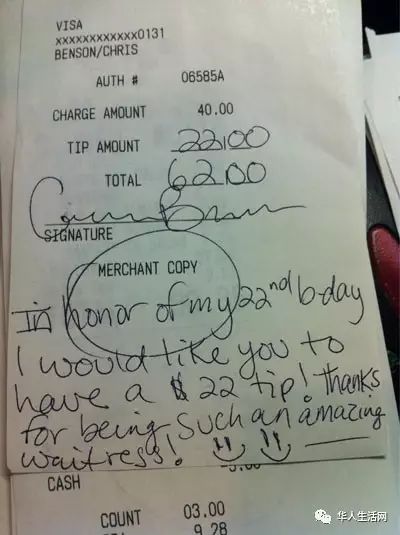 VISA
xxxxxxxxxxxx0131
BENSON/CHRIS
AUTH # 06585A
CHARGE AMOUNT 40.00
TIP AMOUNT 22.00
TOTAL 62.00
SIGNATURE
MERCHANT COPY
In honor of my 22nd b-day
I would like you to
have a $22 tip! thanks
for being such an amazing
waitress!
CASH
COUNT 03.00
9.28
华人生活网